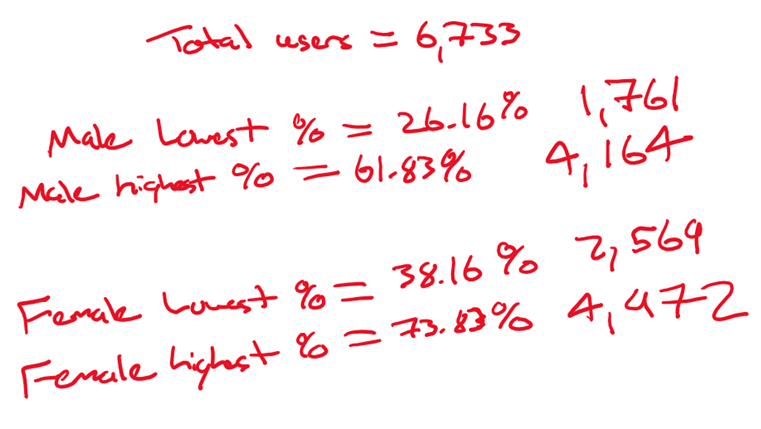 Total users = 6,733
Male Lowest % = 26.16% 1,761
Male highest % = 61.83% 4,164
Female Lowest % = 38.16% 2,569
Female highest % = 73.83% 4,472